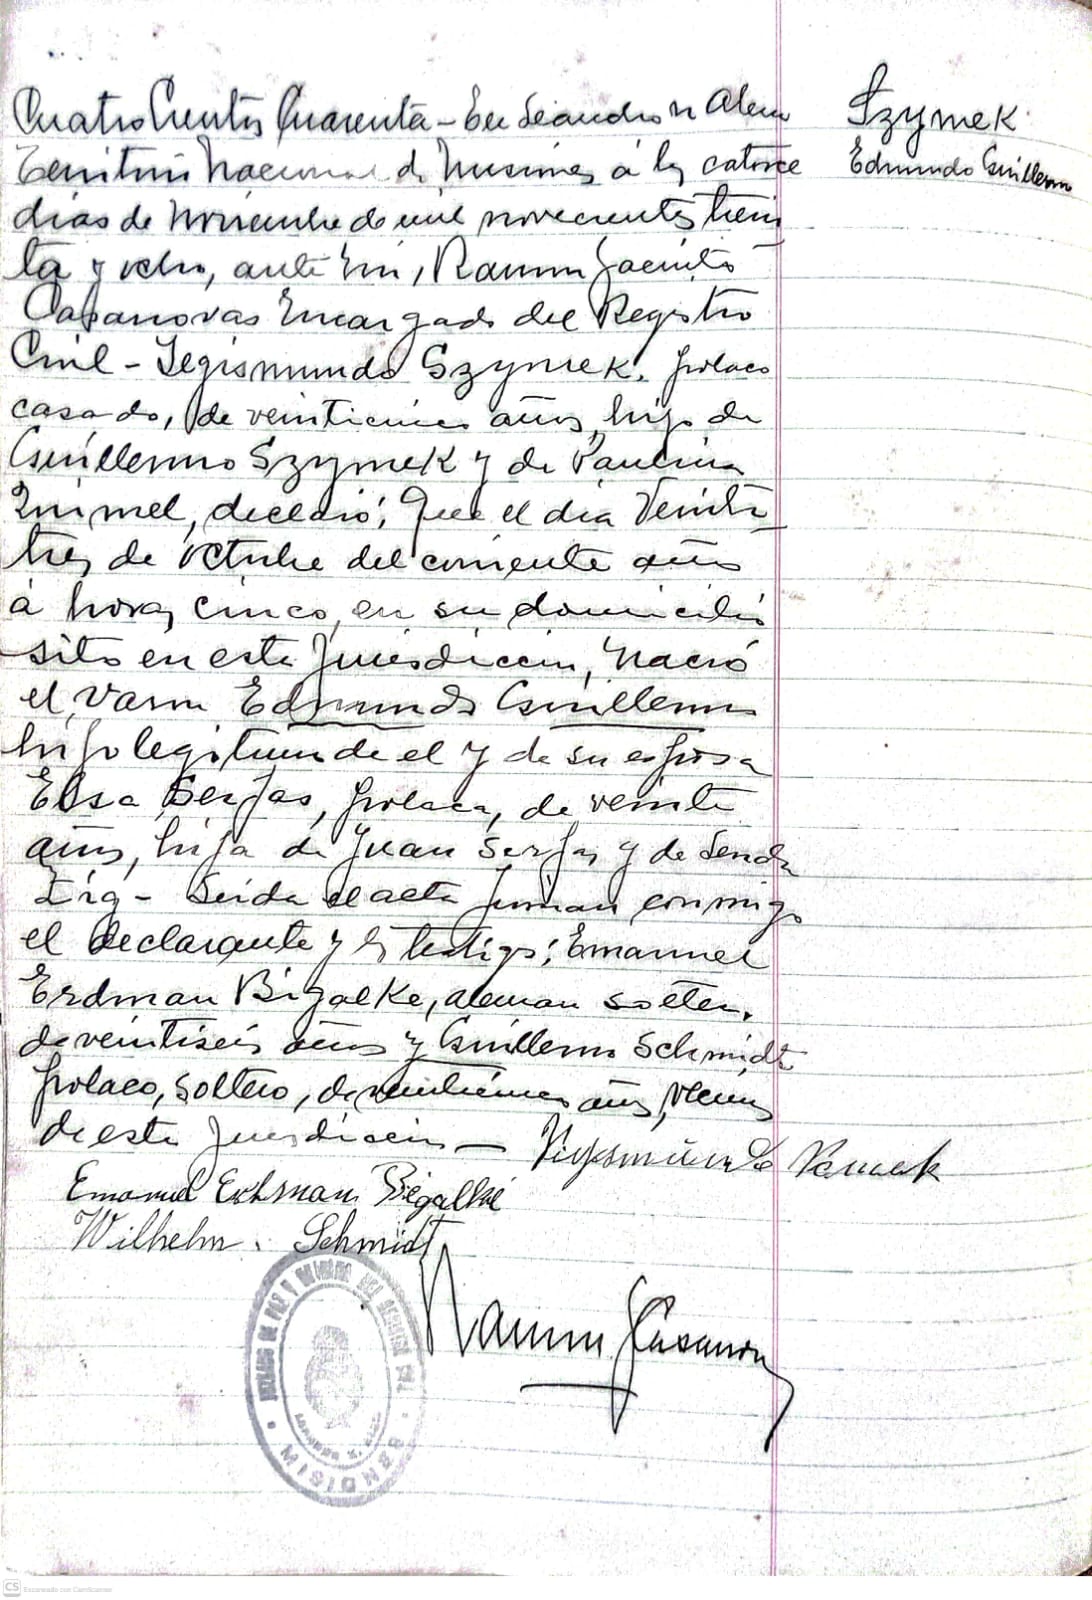 Cuatrocientos Cuarenta - En Leandro N Alem
Territorio Nacional de Misiones á los catorce
días de Noviembre de mil novecientos trein
ta y ocho, ante mi, Ramon Jacinto
Casanovas Encargado del Registro
Civil - Segismundo Szymek, polaco
casado, de veinticinco años, hijo de
Guillermo Szymek y de Paulina
declaró; Que el día Veinti
tres de octubre del corriente año
á horas cinco, en su domicilio
sito en esta Jurisdicción, Nació
el Varon Edmundo Guillermo
hijo legitimo de el y de su esposa
Elsa Serfas, polaca, de veinte
años, hija de Juan Serfas y de
Leida el acta firman conmigo
el declarante y los testigos; Emanuel
Erdman Bigalke, aleman soltero,
de veintiseis años y Guillermo Schmidt
polaco, soltero, de años, vecinos
de esta Jurisdicción —
Emanuel Erdman Bigalke
Wilhelm Schmidt
Ramon J Casanova
JUZGADO DE PAZ Y
MISIONES
Szymek
Edmundo Guillermo
CS Escaneado con CamScanner